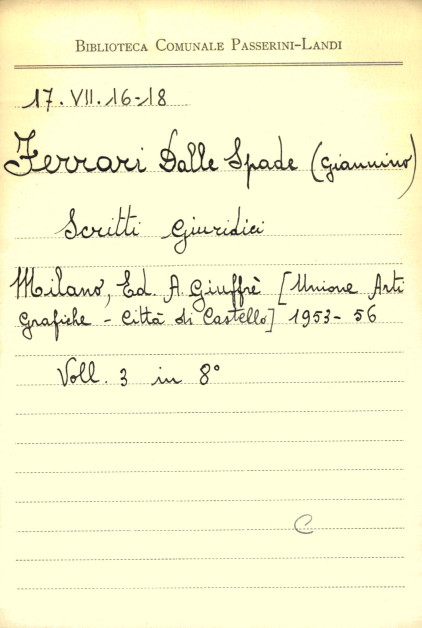 Biblioteca Comunale Passerini-Landi
17. VII. 16-18
Ferrari Dalle Spade (Giannino)
Scritti Giuridici
Milano, Ed. A. Giuffrè [Unione Arti
Grafiche - Città di Castello] 1953-56
Voll. 3 in 8°
C